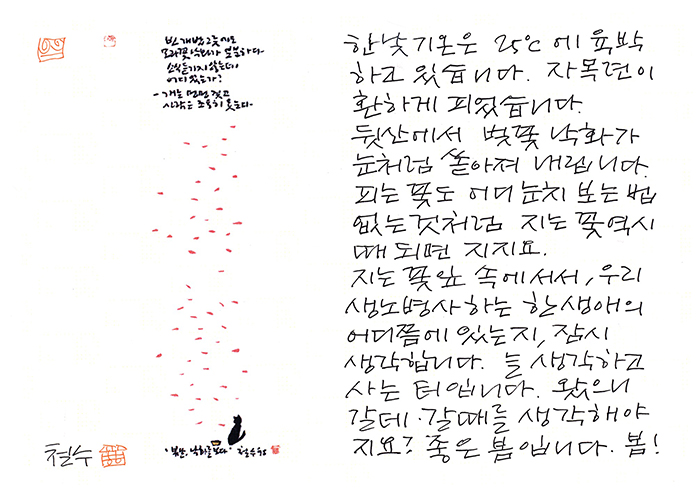 한낮 기온은 25℃에 육박
하고 있습니다. 자목련이
환하게 피었습니다.
뒷산에서 벚꽃 낙화가
눈처럼 쏟아져 내립니다.
피는 꽃도 어디 눈치 보는 법
없는 것처럼 지는 꽃 역시
때 되면 지지요.
지는 꽃잎 속에 서서, 우리
생노병사하는 한 생애의
어디쯤에 있는지, 잠시
생각합니다. 늘 생각하고
사는 터입니다. 왔으니
갈데·갈때를 생각해야
지요? 좋은 봄입니다. 봄!
낙화가 분분하다.
소식 듣기지 않는데
어디 있는가?
사람은 조용히 웃는다.
철수